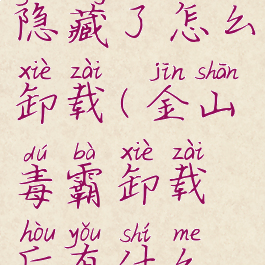 隐藏了怎么
xiè zài jīn shān
卸载(金山
dú bà xiè zài
毒霸卸载
hòu yǒu shí me
后有什么